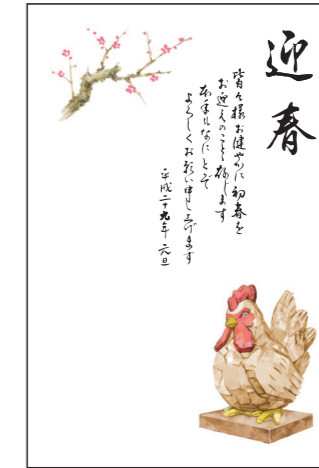 迎春
皆々様お健やかに初春を
お迎えのことと存じます
本年もなにとぞ
よろしくお願い申し上げます
平成二十九年 元旦